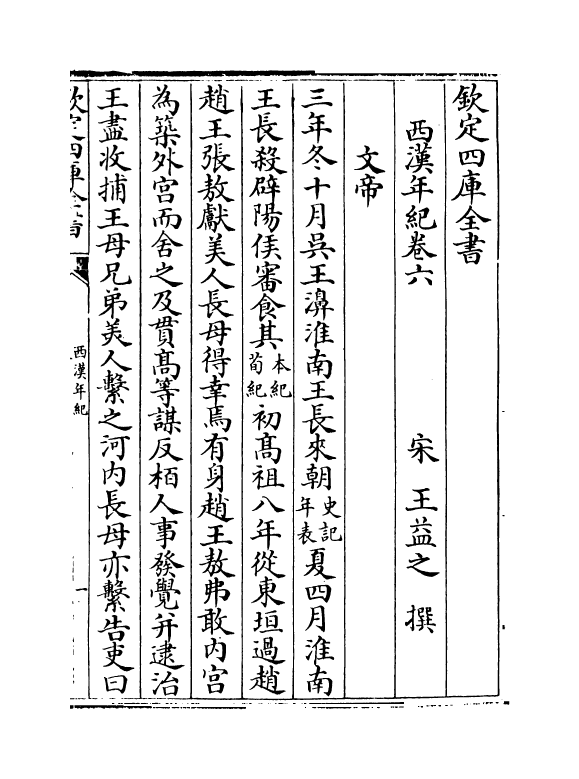 欽定四庫全書
西漢年紀卷六
宋 王益之 撰
文帝
三年冬十月吳王濞淮南王長來朝史記年表夏四月淮南
王長殺辟陽侯審食其本紀荀紀初髙祖八年從東垣過趙
趙王張敖獻美人長母得幸焉有身趙王敖弗敢内宫
為築外宫而舍之及貫髙等謀反栢人事發覺并逮治
王盡收捕王母兄弟美人繫之河内長母亦繫告吏曰
欽定四庫全書
西漢年紀
一